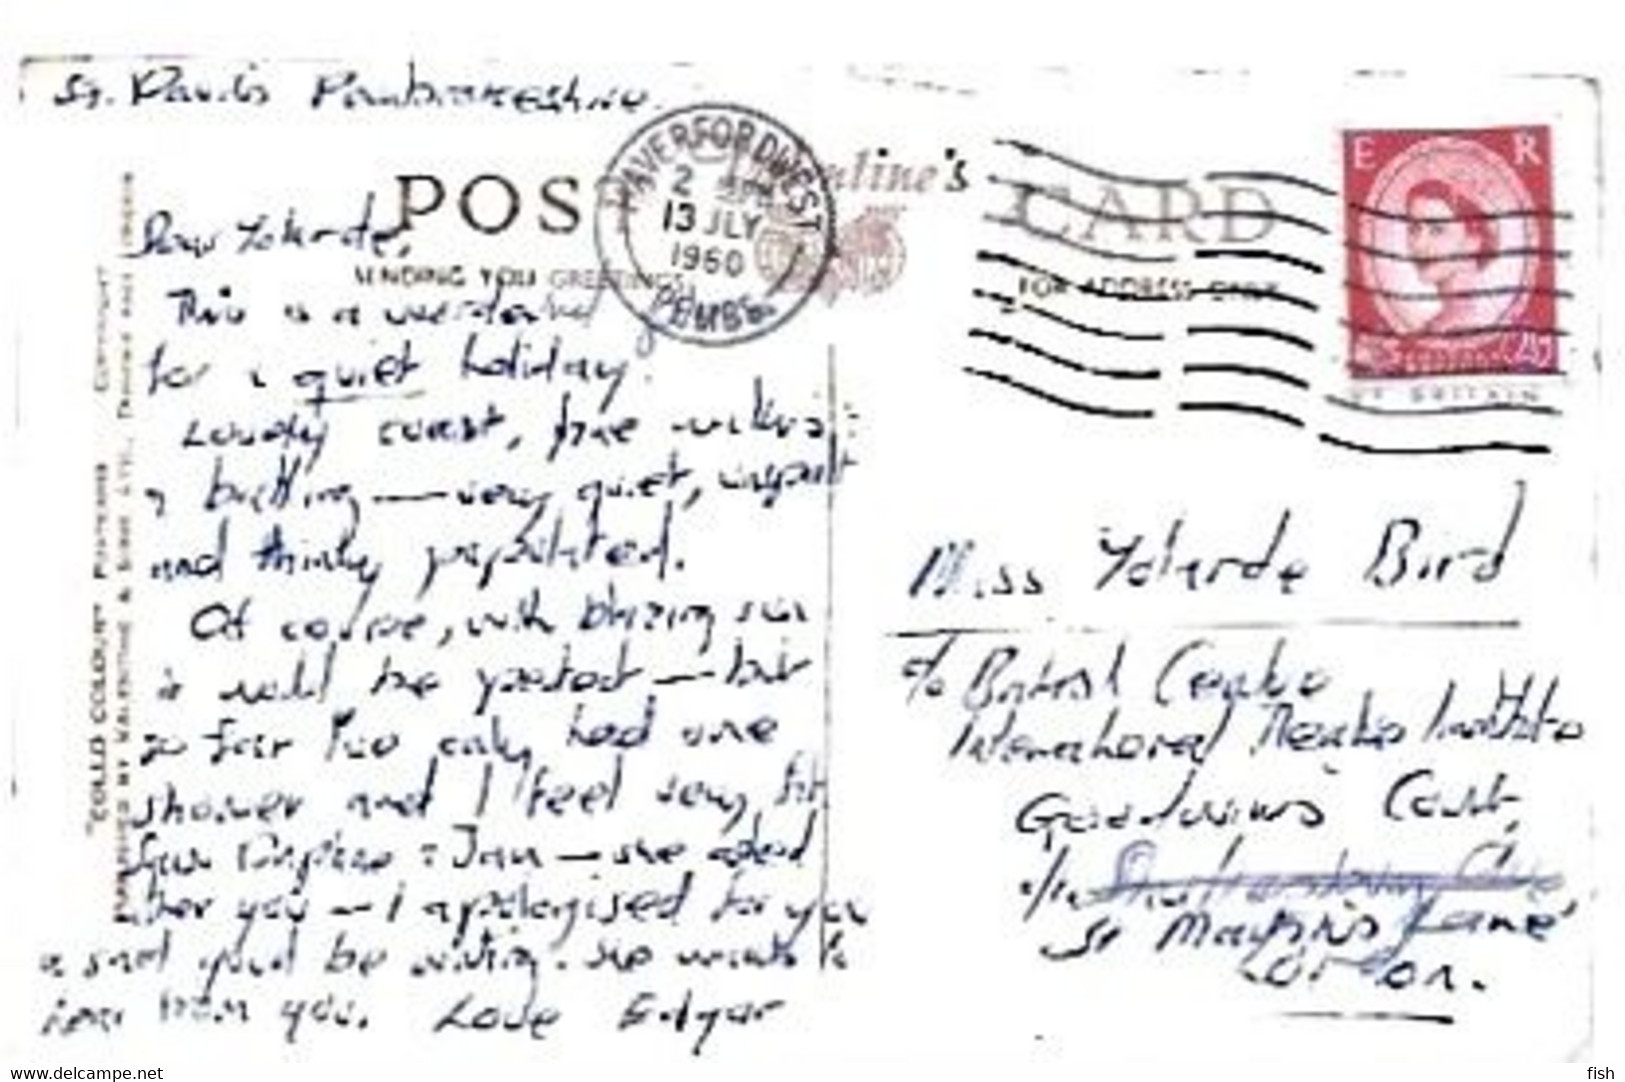 St. Davids Pembrokeshire.
POST CARD
Valentine's
SENDING YOU GREETINGS
FOR ADDRESS ONLY
HAVERFORDWEST
2 PM
13 JLY
1960
PEMBS
E R
Dear Yolande,
This is a wonderful
for a quiet holiday.
Lovely coast, fine walks
& bathing — very quiet, unspoilt
and thinly populated.
Of course, with blazing sun
it would be perfect — but
so far I've only had one
shower and I feel very fit
Saw & Jan — she asked
after you — I apologised for you
& said you'd be writing. She wants to
hear from you. Love Edgar
Miss Yolande Bird
c/o British Centre
International Theatre Institute
Goodwins Court,
St Martin's Lane,
London.
"COLLO COLOUR" POSTCARD COPYRIGHT
PUBLISHED BY VALENTINE & SONS LTD., DUNDEE AND LONDON
delcampe.net
fish